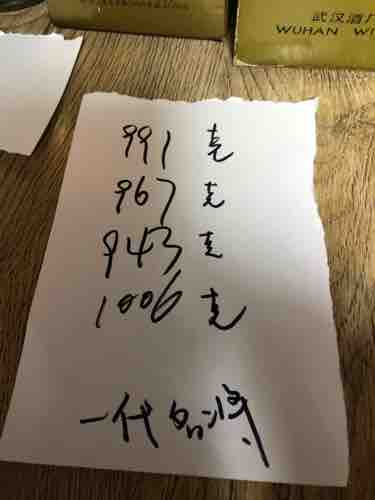 武汉酒厂
WUHAN WI
991 克
967 克
943 克
1006 克
一代名将